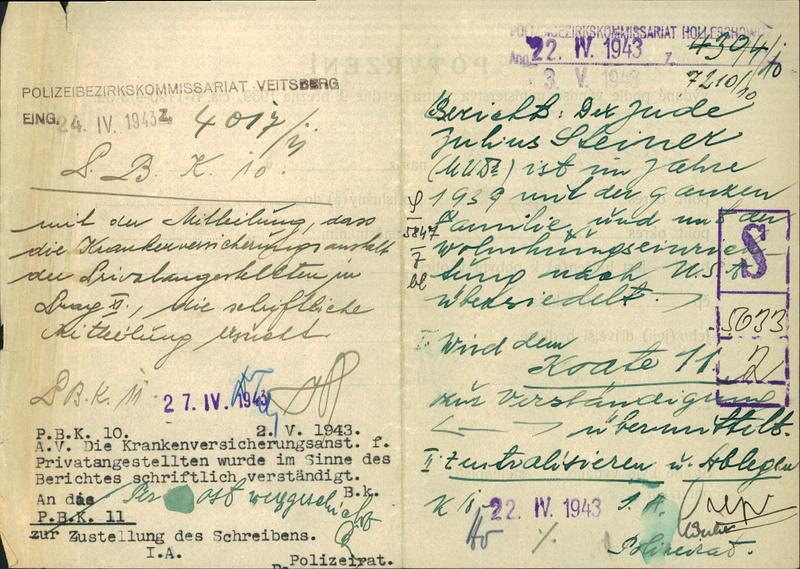 POLIZEIBEZIRKSKOMMISSARIAT VEITSBERG
EING. 24. IV. 1943 Z. 4017/
P. B. K. 10.
mit der Mitteilung, dass
die Krankenversicherungsanstalt
der Privatangestellten in
Prag II., die schriftliche
Mitteilung ersucht
P.B.K. 11 27. IV. 1943
P.B.K. 10. 2. V. 1943.
A.V. Die Krankenversicherungsanst. f.
Privatangestellten wurde im Sinne des
Berichtes schriftlich verständigt.
B.k.
An das Per Post weggeschickt
P.B.K. 11
zur Zustellung des Schreibens.
I.A.
Polizeirat.
POLIZEIBEZIRKSKOMMISSARIAT HOLLESCHOWITZ
Ang. 22. IV. 1943 Z. 4304/10
3 V. 1943 7210/10
Bericht: Der Jude
Julius Steiner
ist im Jahre
1939 mit der ganzen
Familie und mit der
Wohnungseinrich-
tung nach USA
übersiedelt.
S
5847
7
bl
S
5033
2
I. Wird dem
Koate 11
zur Verständigung
übermittelt.
II Zentralisieren u. Ablegen
K 10. 22. IV. 1943 I. A.
Polizeirat.